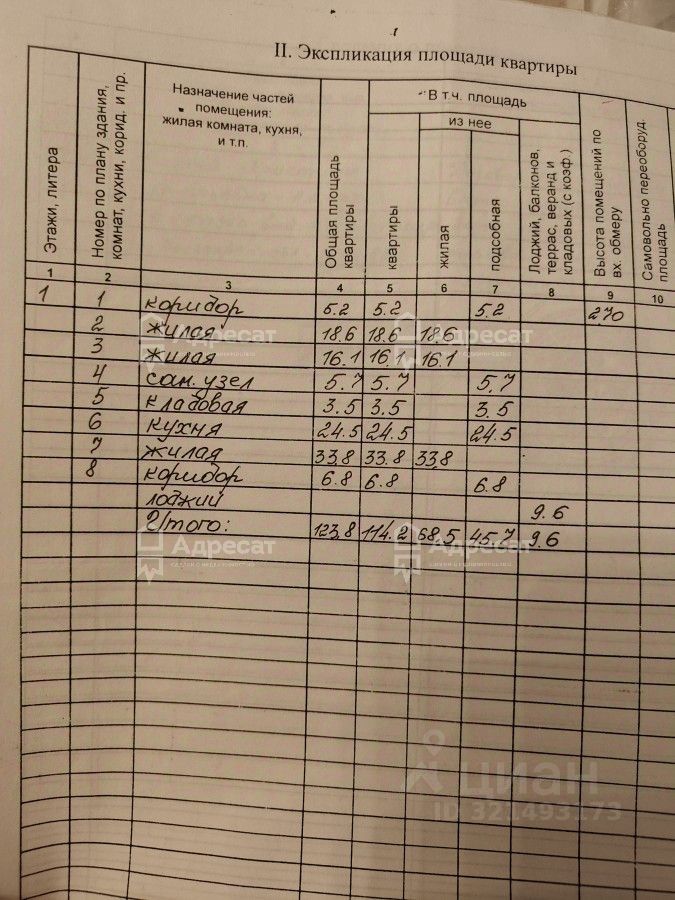 II. Экспликация площади квартиры
Этажи, литера
Номер по плану здания, комнат, кухни, корид. и пр.
Назначение частей
помещения:
жилая комната, кухня,
и т.п.
Общая площадь квартиры
В т.ч. площадь
из нее
квартиры
жилая
подсобная
Лоджий, балконов, террас, веранд и кладовых (с коэф)
Высота помещений по вх. обмеру
Самовольно переоборуд. площадь
1 2 3 4 5 6 7 8 9 10
1 1 коридор 5.2 5.2 5.2 270
2 жилая 18.6 18.6 18.6
3 жилая 16.1 16.1 16.1
4 сан.узел 5.7 5.7 5.7
5 кладовая 3.5 3.5 3.5
6 кухня 24.5 24.5 24.5
7 жилая 33.8 33.8 33.8
8 коридор 6.8 6.8 6.8
лоджии 9.6
Итого: 123.8 114.2 68.5 45.7 9.6
Адресат
Адресат
Адресат
Адресат
циан